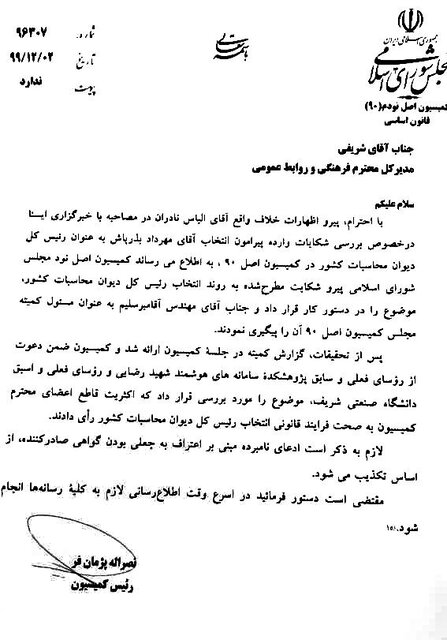 جمهوری اسلامی ایران
مجلس شورای اسلامی
کمیسیون اصل نودم(۹۰)
قانون اساسی
باسمه تعالی
شماره ۹۶۳۰۷
تاریخ ۹۹/۱۲/۰۲
پیوست ندارد
جناب آقای شریفی
مدیرکل محترم فرهنگی و روابط عمومی
سلام علیکم
با احترام، پیرو اظهارات خلاف واقع آقای الیاس نادران در مصاحبه با خبرگزاری ایسنا
درخصوص بررسی شکایات وارده پیرامون انتخاب آقای مهرداد بذرپاش به عنوان رئیس کل
دیوان محاسبات کشور در کمیسیون اصل ۹۰ ، به اطلاع می رساند کمیسیون اصل نود مجلس
شورای اسلامی پیرو شکایت مطرح‌شده به روند انتخاب رئیس کل دیوان محاسبات کشور،
موضوع را در دستور کار قرار داد و جناب آقای مهندس آقامیرسلیم به عنوان مسئول کمیته
مجلس کمیسیون اصل ۹۰ آن را پیگیری نمودند.
پس از تحقیقات، گزارش کمیته در جلسهٔ کمیسیون ارائه شد و کمیسیون ضمن دعوت
از رؤسای فعلی و سابق پژوهشکدهٔ سامانه های هوشمند شهید رضایی و رؤسای فعلی و اسبق
دانشگاه صنعتی شریف، موضوع را مورد بررسی قرار داد که اکثریت قاطع اعضای محترم
کمیسیون به صحت فرایند قانونی انتخاب رئیس کل دیوان محاسبات کشور رأی دادند.
لازم به ذکر است ادعای نامبرده مبنی بر اعتراف به جعلی بودن گواهی صادرکننده، از
اساس تکذیب می شود.
مقتضی است دستور فرمائید در اسرع وقت اطلاع‌رسانی لازم به کلیهٔ رسانه‌ها انجام
شود.
نصراله پژمان فر
رئیس کمیسیون